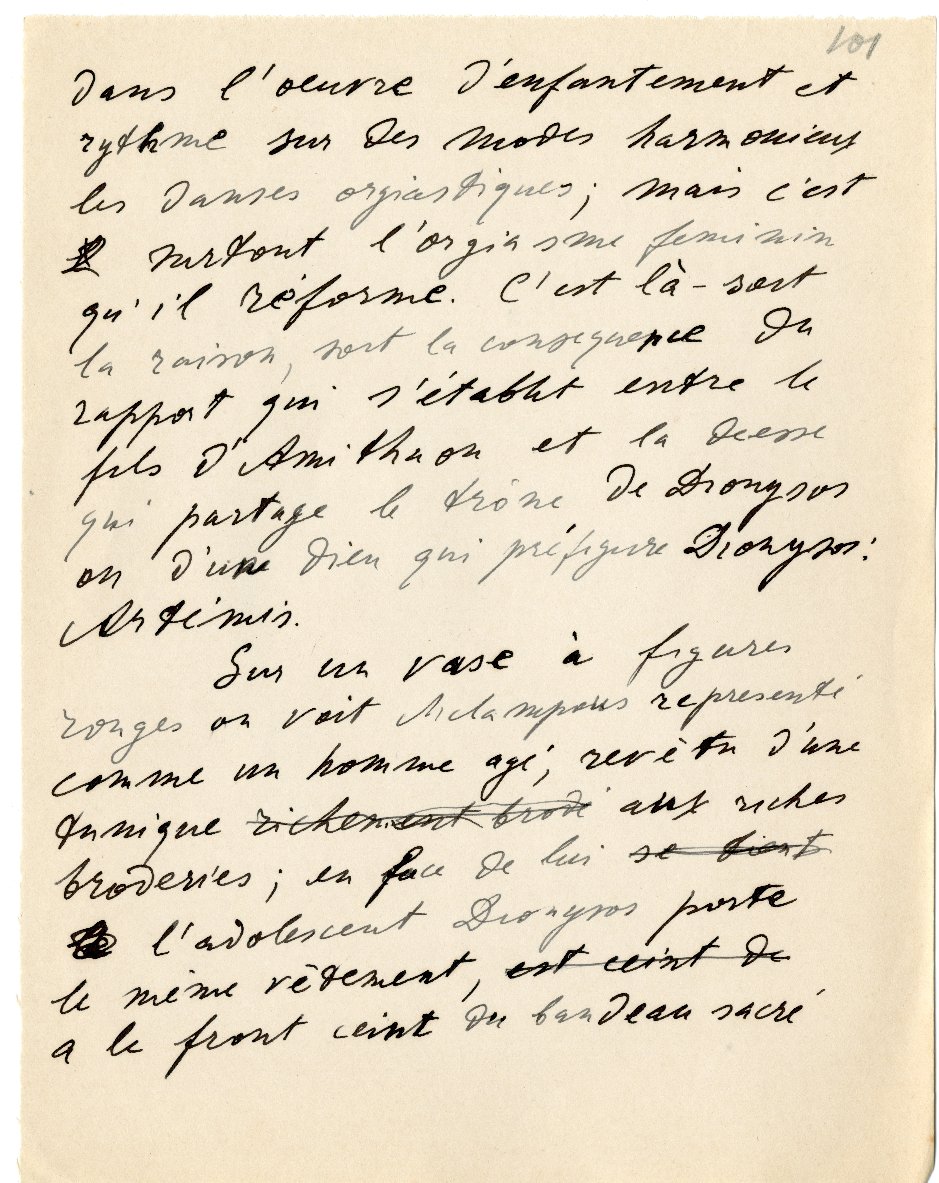 101
dans l'oeuvre d'enfantement et
rythme sur des modes harmonieux
les danses orgiastiques; mais c'est
surtout l'orgiasme feminin
qu'il réforme. C'est là-soit
la raison, soit la consequence du
rapport qui s'établit entre le
fils d'Amithaon et la deesse
qui partage le trône de Dionysos
ou d'une dieu qui préfigure Dionysos:
Artémis.
Sur un vase à figures
rouges on voit Melampous representé
comme un homme agé, revêtu d'une
tunique richement brodé aux riches
broderies; en face de lui se tient
l'adolescent Dionysos porte
le même vêtement, est ceint de
a le front ceint du bandeau sacré